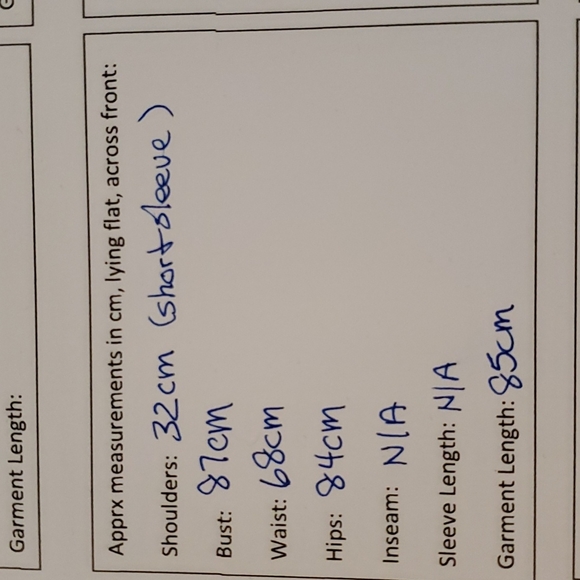 Garment Length:
Apprx measurements in cm, lying flat, across front:
Shoulders: 32cm (short sleeve)
Bust: 87cm
Waist: 68cm
Hips: 84cm
Inseam: N/A
Sleeve Length: N/A
Garment Length: 85cm